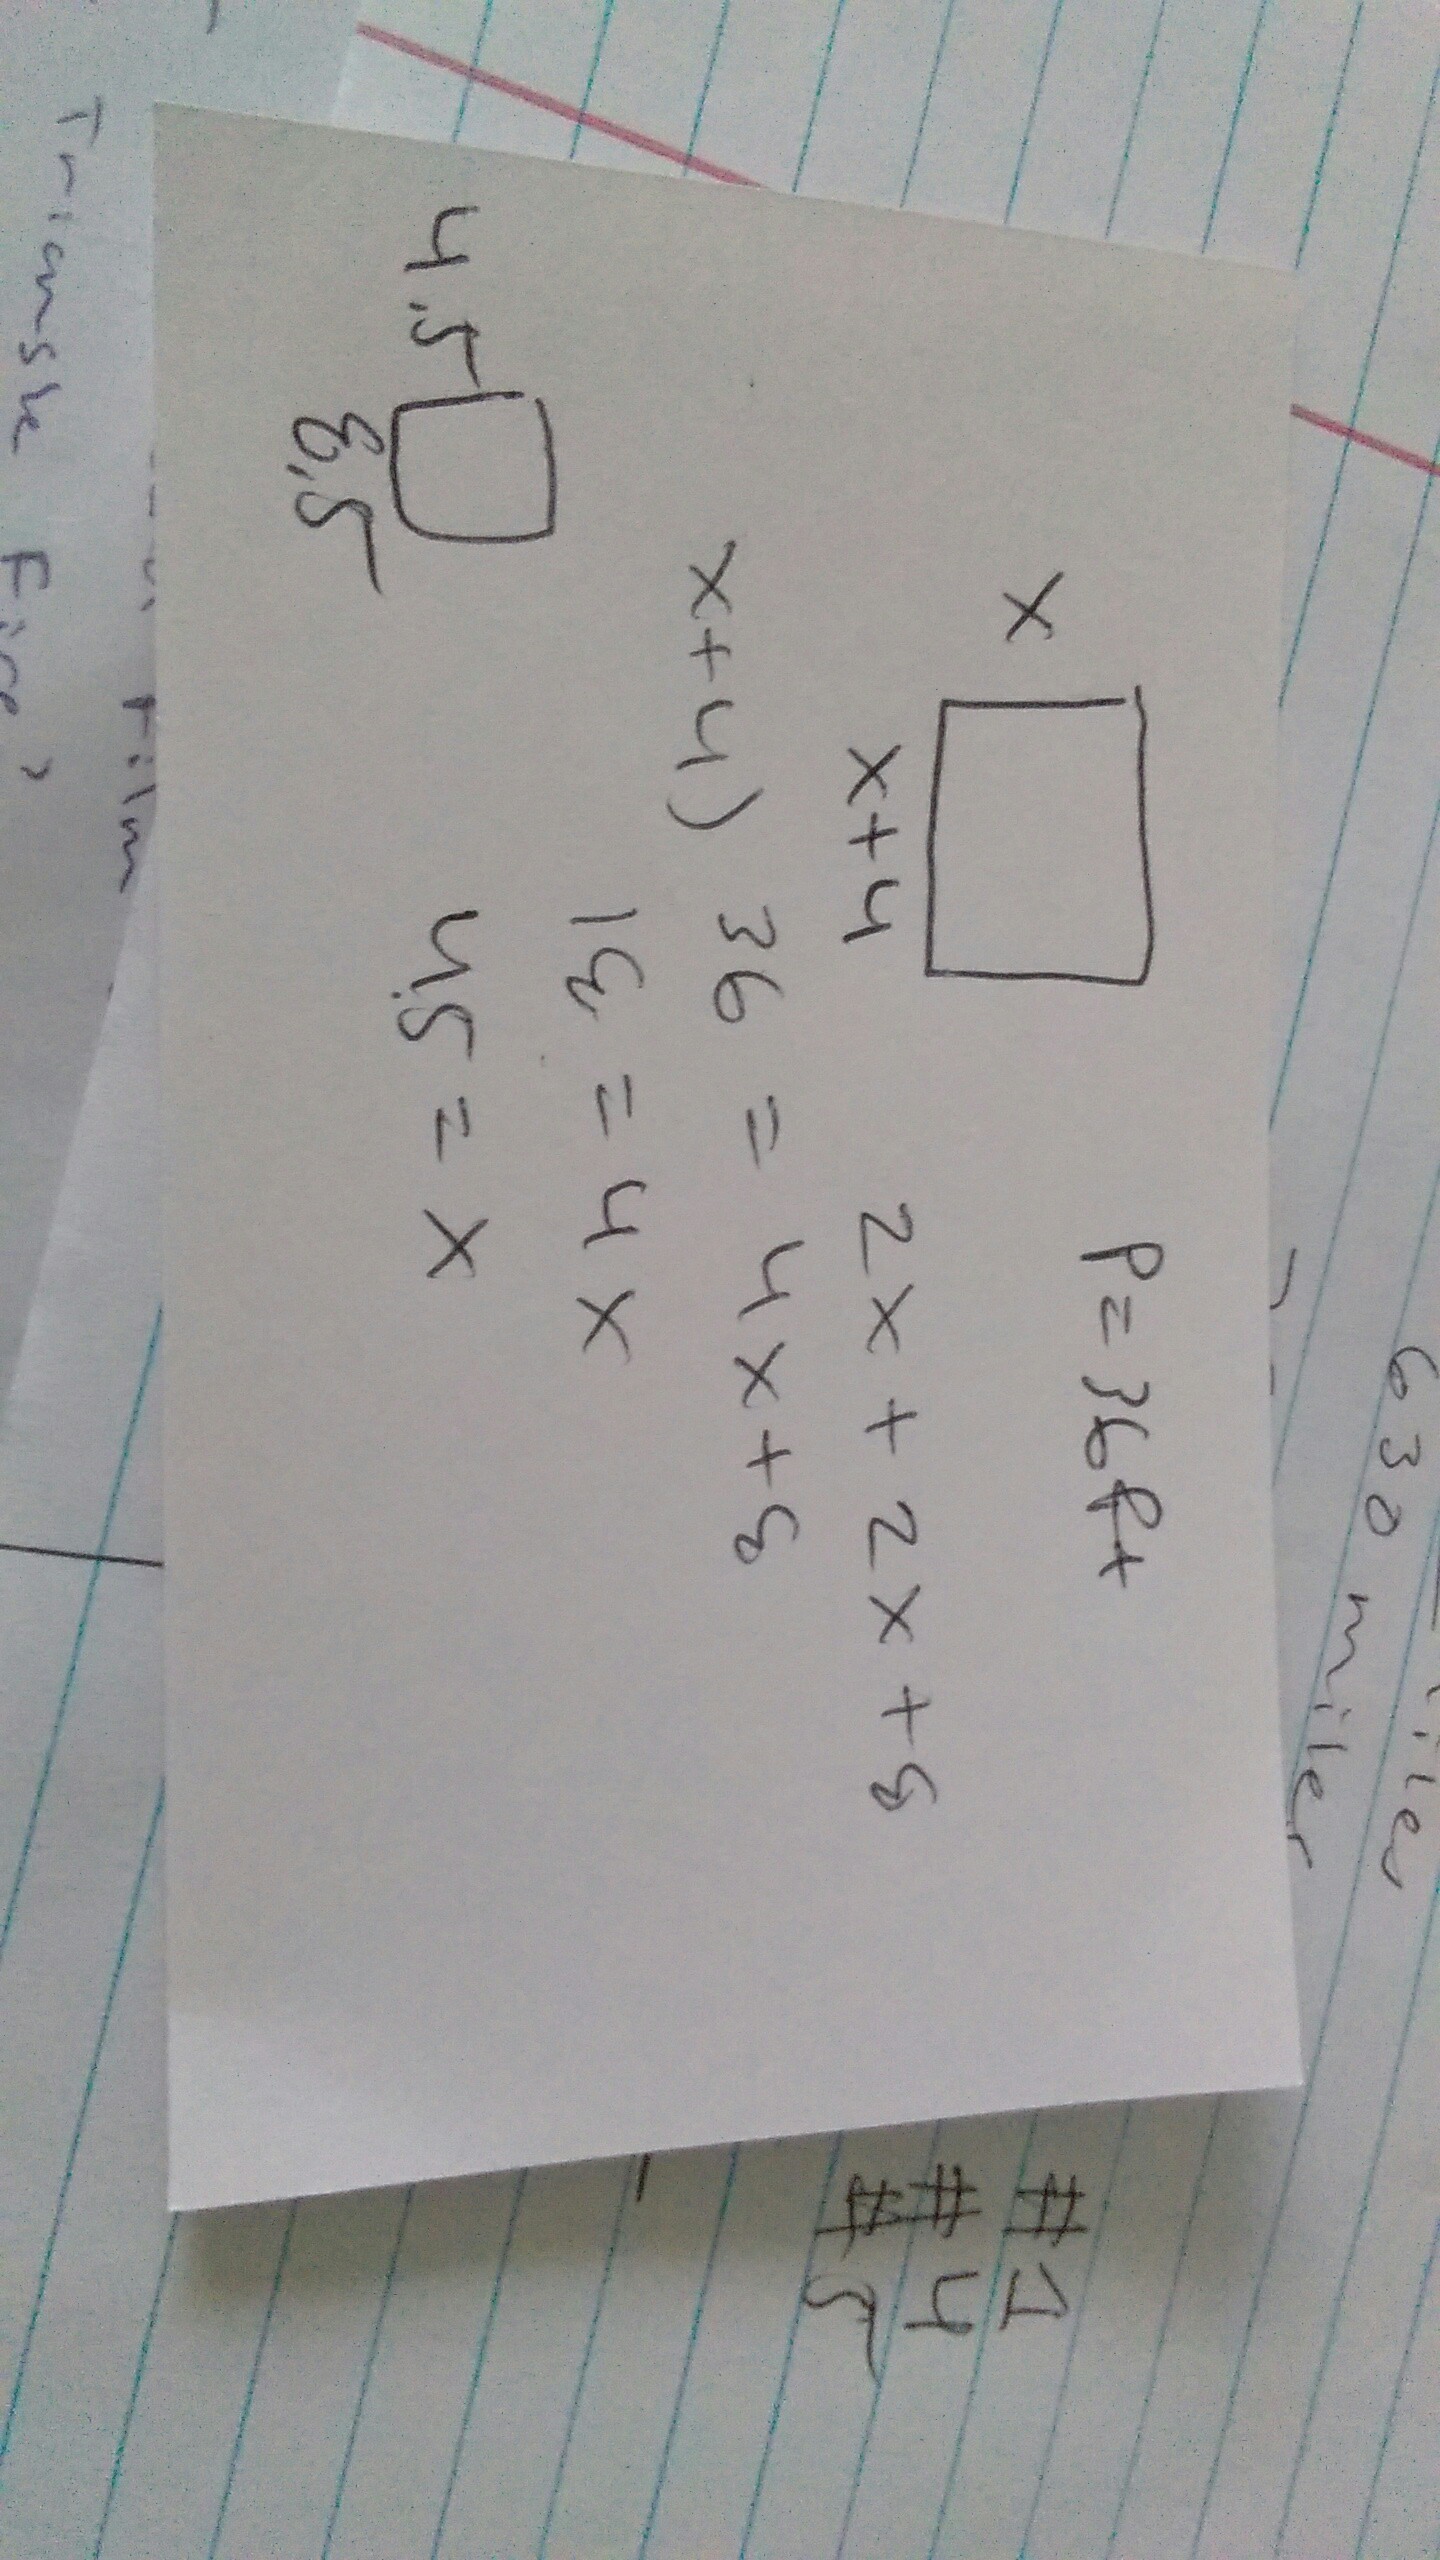 630 miles
P=36ft
x
x+4
2x + 2x + 8
x+4) 36 = 4x+8
18 = 4x
4.5 = x
4.5
8.5
#1
#4
#5
Film
Triangle Fire?